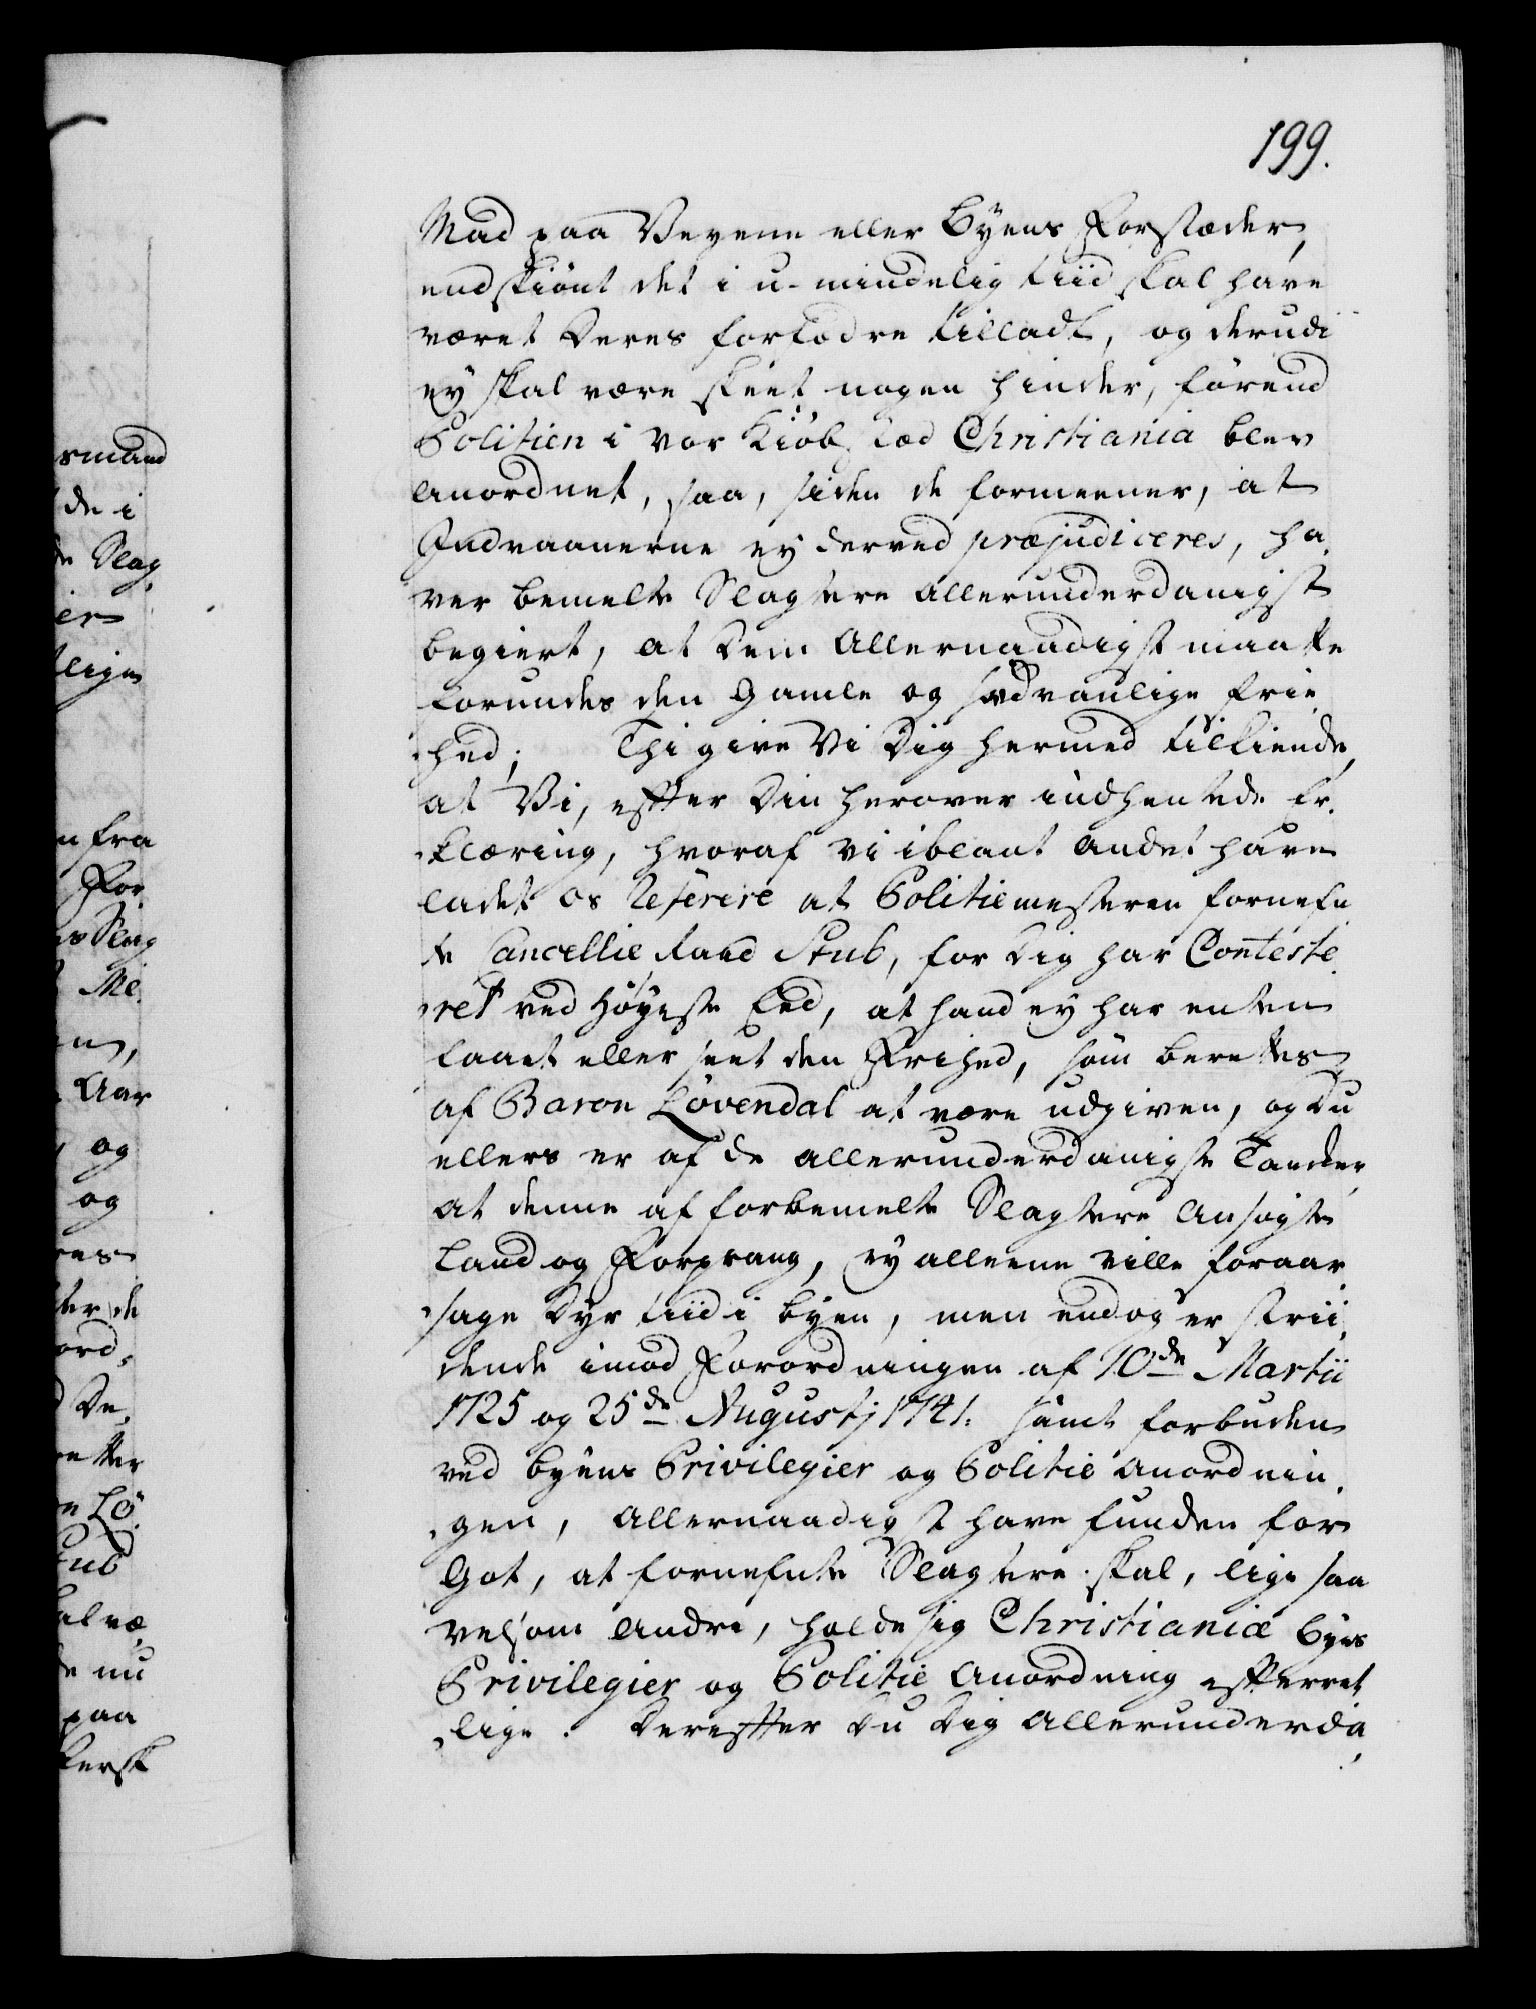 199.
Mad paa Veyene eller Byens Forstæder,
endskiønt det i u-mindelig tiid skal have
været Deres forfædre tilladt, og derudi
ey skal være skeet nogen hinder, førend
Politien i vor Kiøbstæd Christiania blev
anordnet, saa, siden de formeener, at
Indvaanerne ey derved præjudiceres, ha,
ver bemelte Slagtere allerunderdanigst
begiert, at Dem allernaadigst maatte
forundes den gamle og sædvanlige frie,
,hed; Thi give Vi Dig hermed tilkiende,
at Vi, efter Din herover indhentede Er,
,klæring, hvoraf vi iblant andet have
ladet os referere at Politiemesteren fornefn,
te Cancellie Raad Stub, for Dig har Conteste,
,ret ved høyeste Eed, at hand ey har enten
faaet eller seet den Frihed, som berettes
af Baron Løvendal at være udgiven, og Du
ellers er af de allerunderdanigste Tancker,
at denne af forbemelte Slagtere ansøgte
Land og Forprang, ey alleene ville foraar,
,sage Dyr tiid i byen, men endog er strii,
dende imod Forordningen af 10de Martii
1725 og 25de Augustj 1741. samt forbuden
ved byens Privilegier og Politie anordnin,
,gen, allernaadigst have funden for
Got, at fornefnte Slagtere skal, lige saa
velsom andre, holde sig Christianiæ Byes
Privilegier og Politie anordning efterret,
,lige. Derefter Du Dig allerunderda,
smand
de i
Slag,
er
lige
fra
For,
Slag
Me,
Aar
og
og
der de
ord,
De,
etter
Lø,
tub
nu
paa